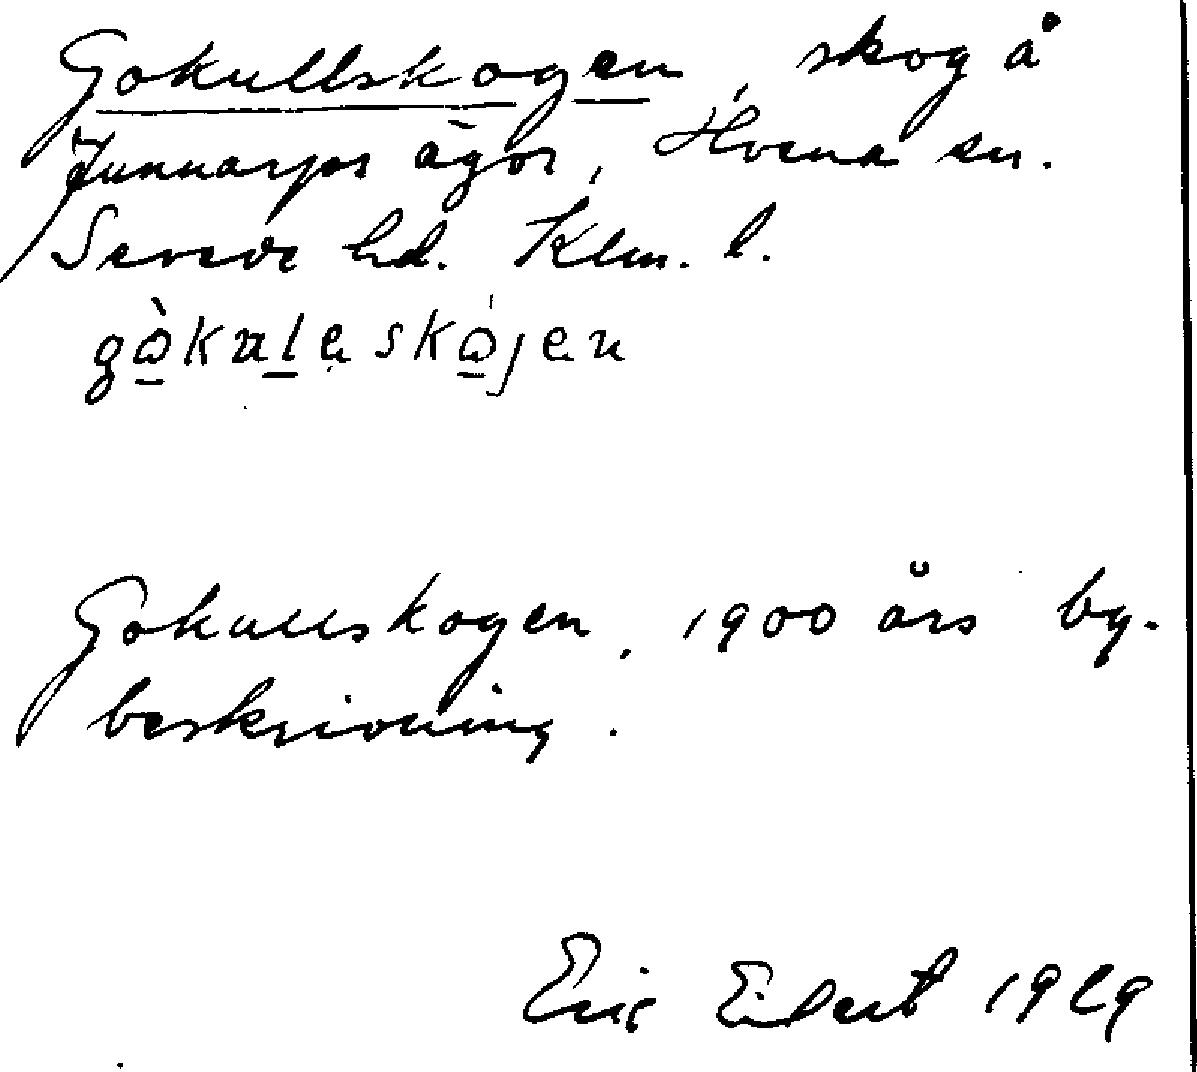 Gokullskogen, skog å
Gunnarps ägor, Hvena sn.
Sevede hd. Klm. l.
Gokullskogen, 1900 års by-
beskrivning.
Eric Eilert 1929